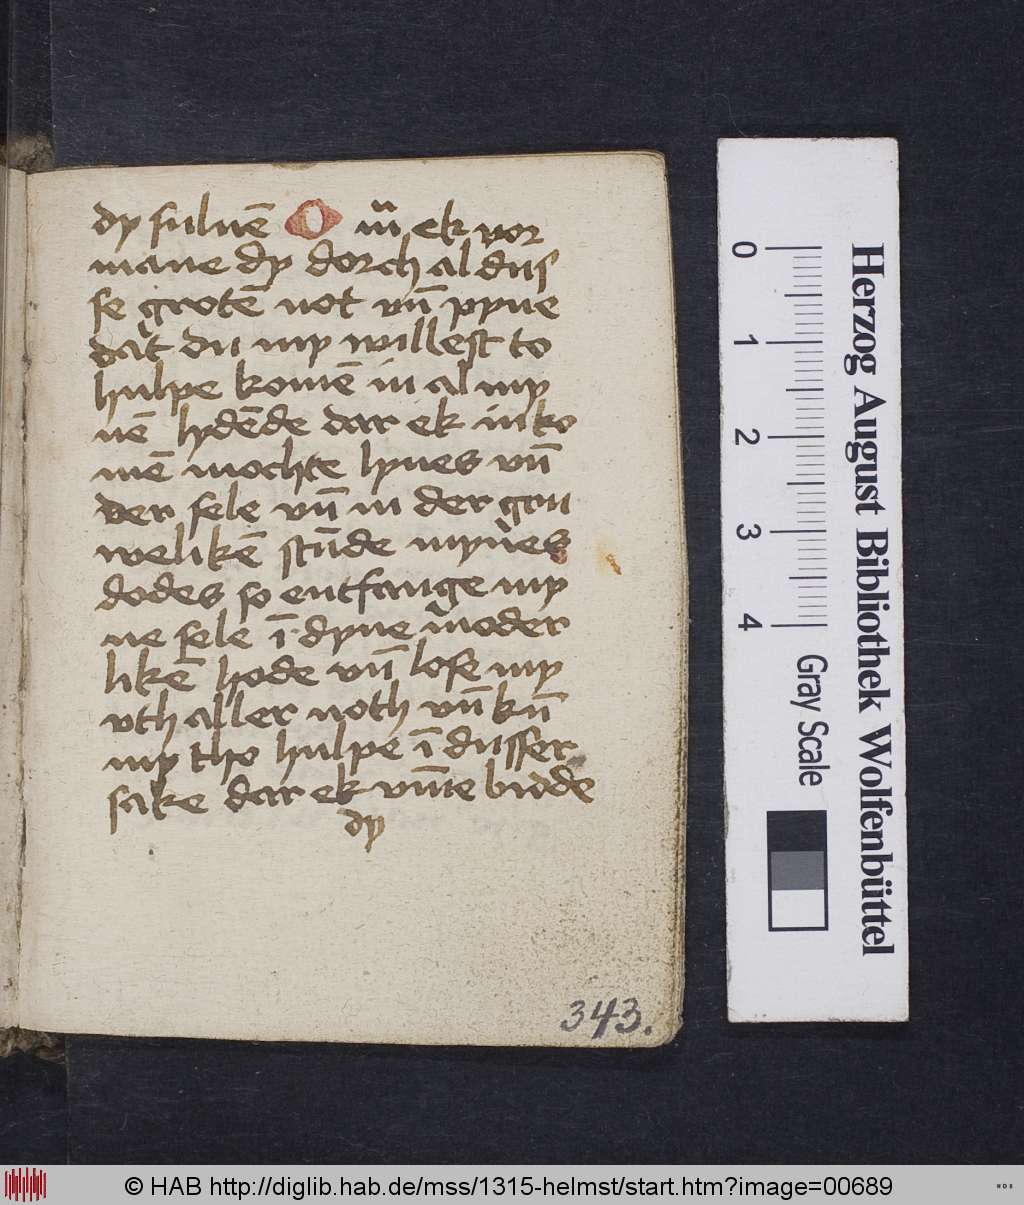 dy suluē O m̄ ek vor
mane dy dorch al dus
se grotē not vn̄ pyne
dat du my willest to
hulpe komē in al my
nē lydēde dar ek in ko
mē mochte lyues vn̄
der sele vn̄ in der gru
welikē stūde mynes
dodes so entfange my
ne sele ī dyne moder
likē hode vn̄ lose my
vth aller noth vn̄ kū
my tho hulpe ī dusser
sake dar ek vm̄te bidde
dy
343.
0 1 2 3 4
Gray Scale
Herzog August Bibliothek Wolfenbüttel
© HAB http://diglib.hab.de/mss/1315-helmst/start.htm?image=00689